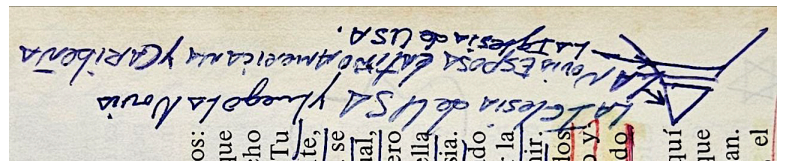 La Iglesia de USA y luego La Novia
LA Novia ESPOSA LATINOAMERICANA Y CARIBEÑA
La Iglesia de USA.
os:
que
cho
Tu
te,
se
ual,
ero
ella
sia.
ado
r la
mir.
dos
o y
do
quí
que
an.
el